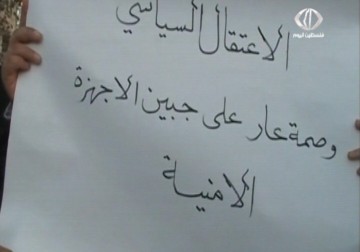 فلسطين اليوم
الاعتقال السياسي
وصمة عار على جبين الاجهزة
الامنية